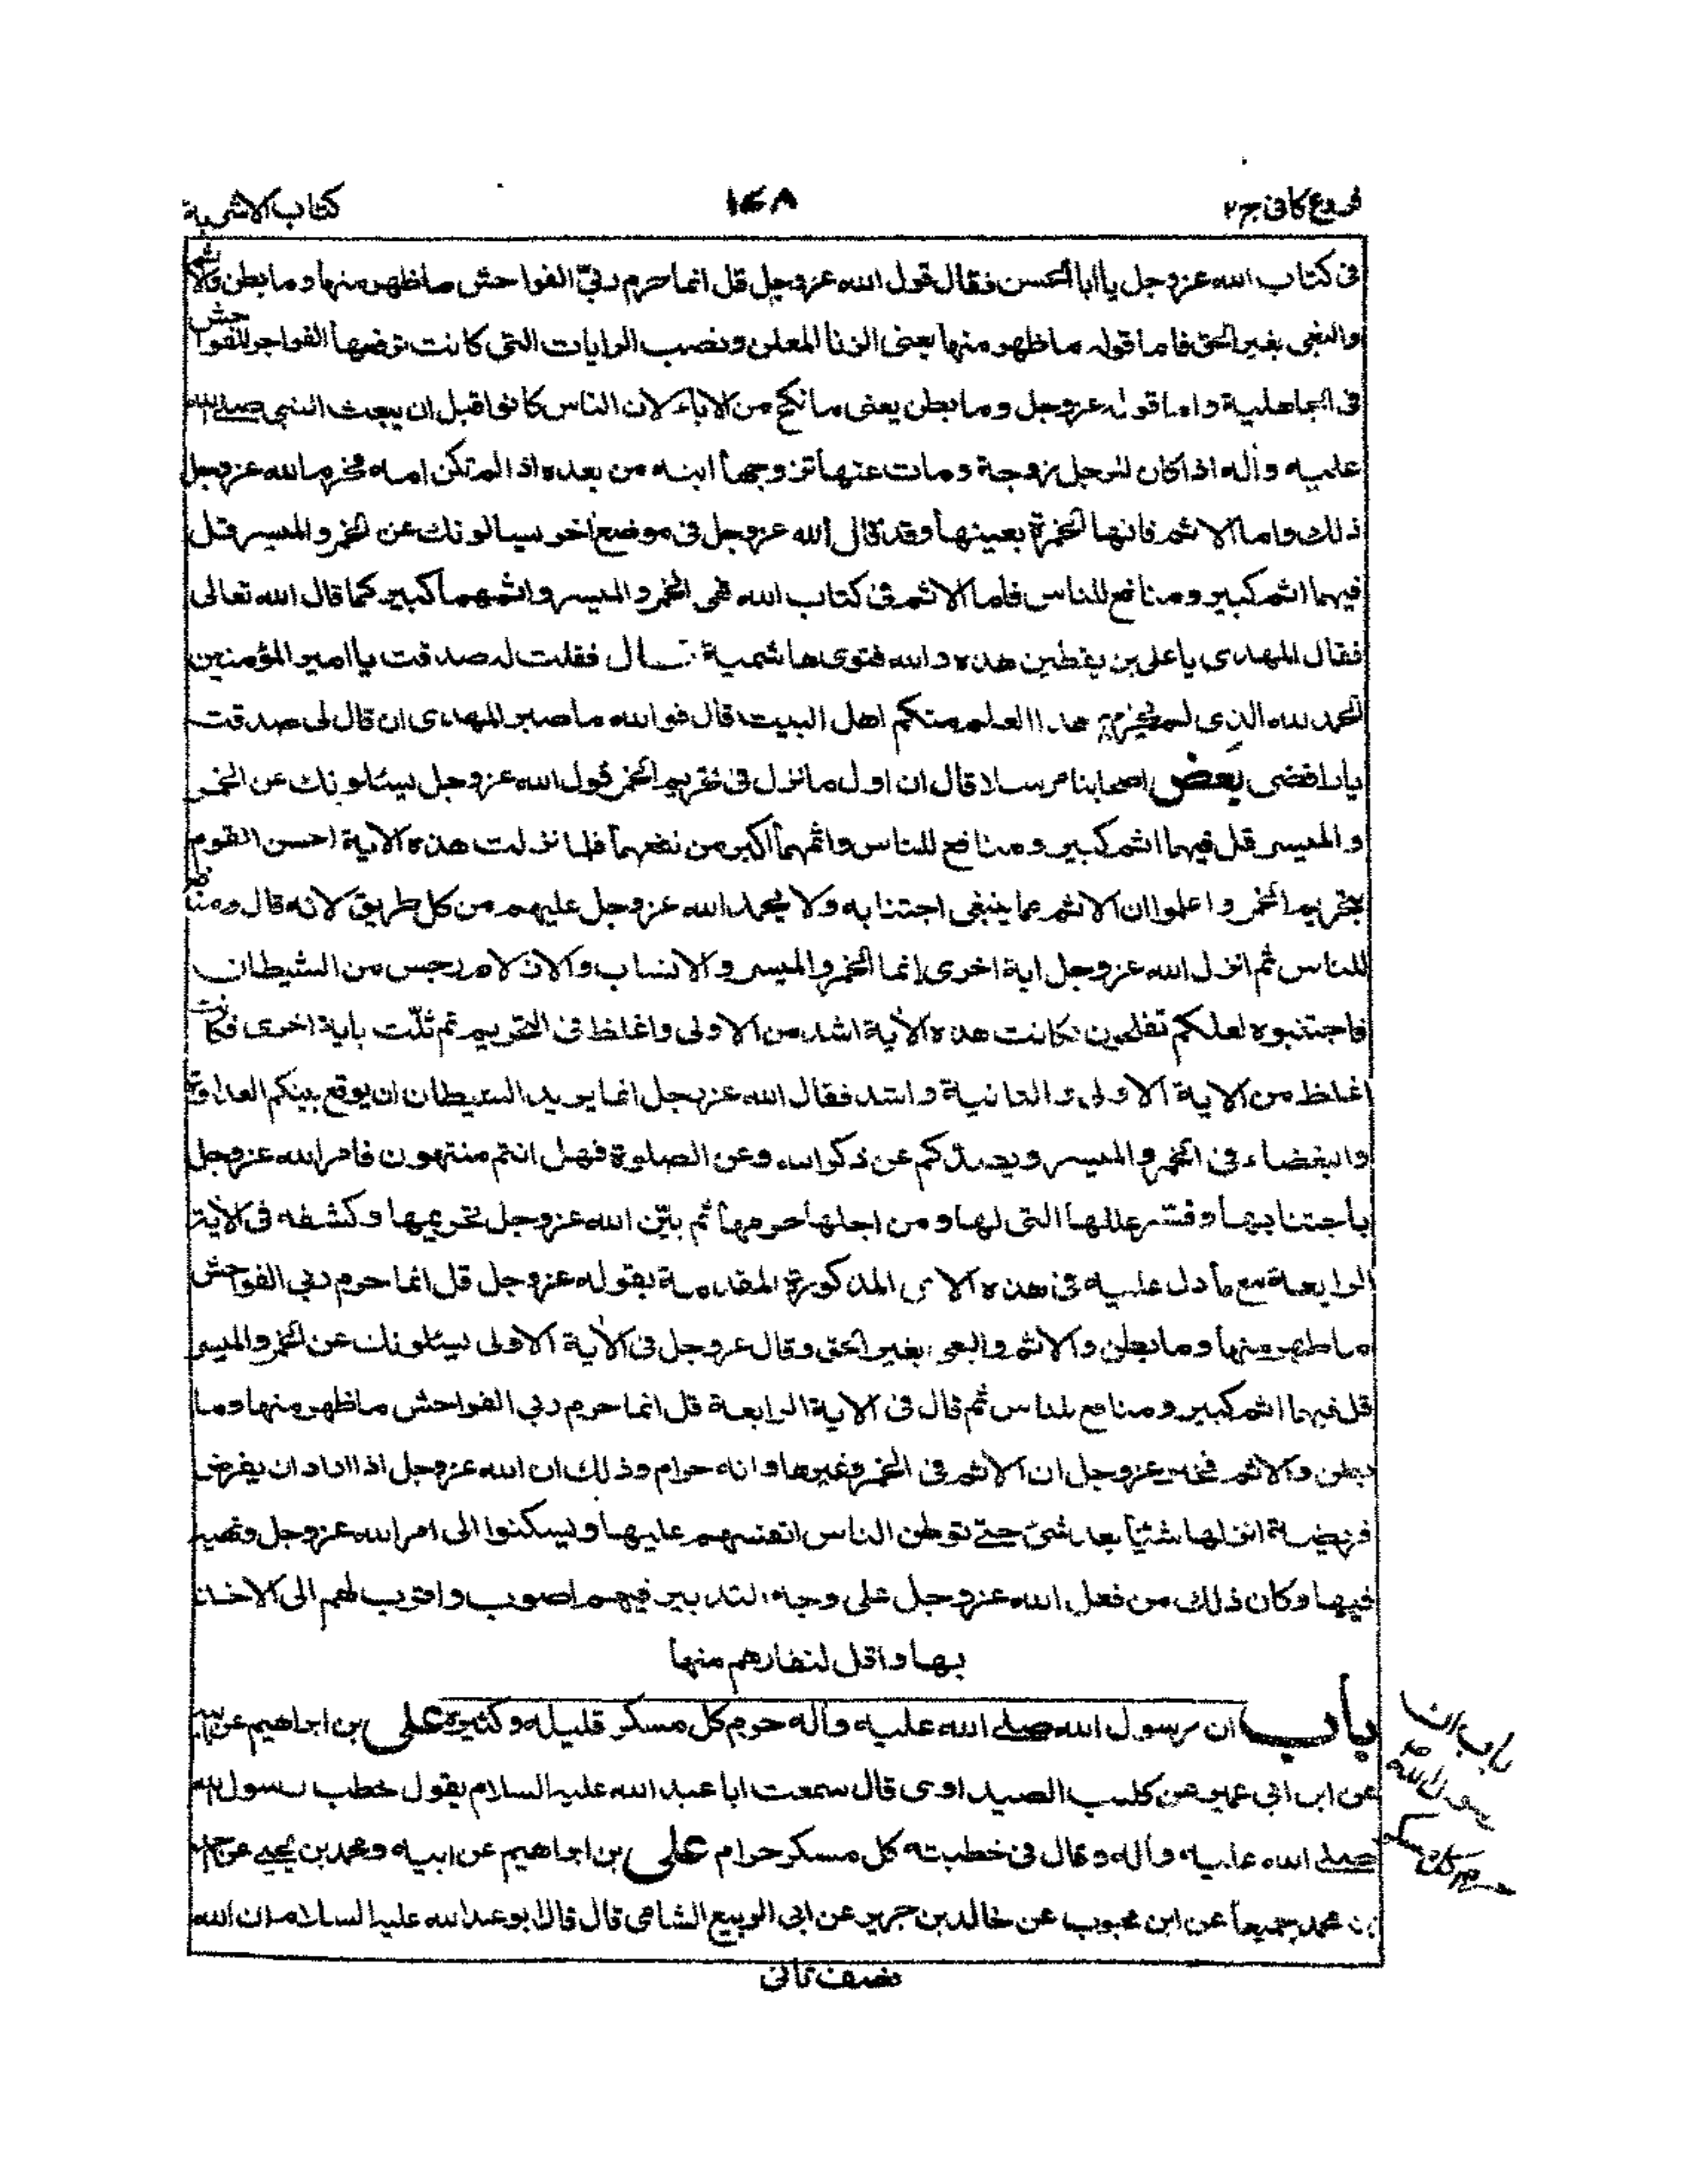 فروع كافى ج٢
١٦٨
كتاب الاشربة
فى كتاب الله عزوجل يا ابا الحسن فقال قول الله عزوجل قل انما حرم ربى الفواحش ما ظهر منها وما بطن والاثم
والبغى بغير الحق فاما قوله ما ظهر منها يعنى الزنا المعلن ونصب الرايات التى كانت ترفعها الفواجر للفواحش
فى الجاهلية واما قوله عزوجل وما بطن يعنى ما نكح من الاباء لان الناس كانوا قبل ان يبعث النبى صلى الله
عليه وأله اذا كان للرجل زوجة ومات عنها تزوجها ابنه من بعده اذا لم تكن امه فحرم الله عزوجل
ذلك واما الاثم فانها الخمرة بعينها وقد قال الله عزوجل فى موضع اخر يسالونك عن الخمر والميسر قل
فيهما اثم كبير ومنافع للناس فاما الاثم فى كتاب الله هى الخمر والميسر واثمهما كبير كما قال الله تعالى
فقال المهدى يا على بن يقطين هذه والله فتوى هاشمية قال فقلت له صدقت يا امير المؤمنين
الحمد لله الذى لم يخرج هذا العلم منكم اهل البيت قال فوالله ما صبر المهدى ان قال لى صدقت
يا رافضى بعض اصحابنا مرسلا قال ان اول ما نزل فى تحريم الخمر قول الله عزوجل يسئلونك عن الخمر
والميسر قل فيهما اثم كبير ومنافع للناس واثمهما اكبر من نفعهما فلما نزلت هذه الأية احسن القوم
بتحريم الخمر واعلموا ان الاثم مما ينبغى اجتنابه ولا يحمد الله عزوجل عليهم من كل طريق لانه قال ومنافع
للناس ثم انزل الله عزوجل اية اخرى إنما الخمر والميسر والانساب والازلام رجس من الشيطان
فاجتنبوه لعلكم تفلحون فكانت هذه الأية اشد من الاولى واغلظ فى التحريم ثم ثلّت باية اخرى فكانت
اغلظ من الاية الاولى والثانية واشد فقال الله عزوجل انما يريد الشيطان ان يوقع بينكم العداوة
والبغضاء فى الخمر والميسر ويصدكم عن ذكر الله وعن الصلوة فهل انتم منتهون فامر الله عزوجل
باجتنابها وفسّر عللها التى لها ومن اجلها حرمها ثم بيّن الله عزوجل تحريمها وكشفه فى الأية
الرابعة مع ما دل عليه فى هذه الاى المذكورة المقدمة بقوله عزوجل قل انما حرم ربى الفواحش
ما ظهر منها وما بطن والاثم والبغى بغير الحق وقال عزوجل فى الأية الاولى يسئلونك عن الخمر والميسر
قل فيهما اثم كبير ومنافع للناس ثم قال فى الاية الرابعة قل انما حرم ربى الفواحش ما ظهر منها وما
بطن والاثم فخبر عزوجل ان الاثم فى الخمر وغيرها وانه حرام وذلك ان الله عزوجل اذا اراد ان يفرض
فريضة انزلها شئيًا بعد شئ حتى توطن الناس انفسهم عليها ويسكنوا الى امر الله عزوجل ونهيه
فيها وكان ذلك من فعل الله عزوجل على وجه التدبير فيهم اصوب واقرب لهم الى الاخذ
بها واقل لنفارهم منها
باب ان رسول الله صلى الله عليه وأله حرم كل مسكر قليله وكثيره على بن ابراهيم عن ابيه
عن ابن ابى عمير عن كليب الصيداوى قال سمعت ابا عبد الله عليه السلام يقول خطب رسول الله
صلى الله عليه وأله وقال فى خطبته كل مسكر حرام على بن ابراهيم عن ابيه ومحمد بن يحيى عن احمد
بن محمد جميعاً عن ابن محبوب عن خالد بن جرير عن ابى الربيع الشامى قال قال ابو عبد الله عليه السلام ان الله
باب ان
رسول الله
حرم كل مسكر
نصف ثانى